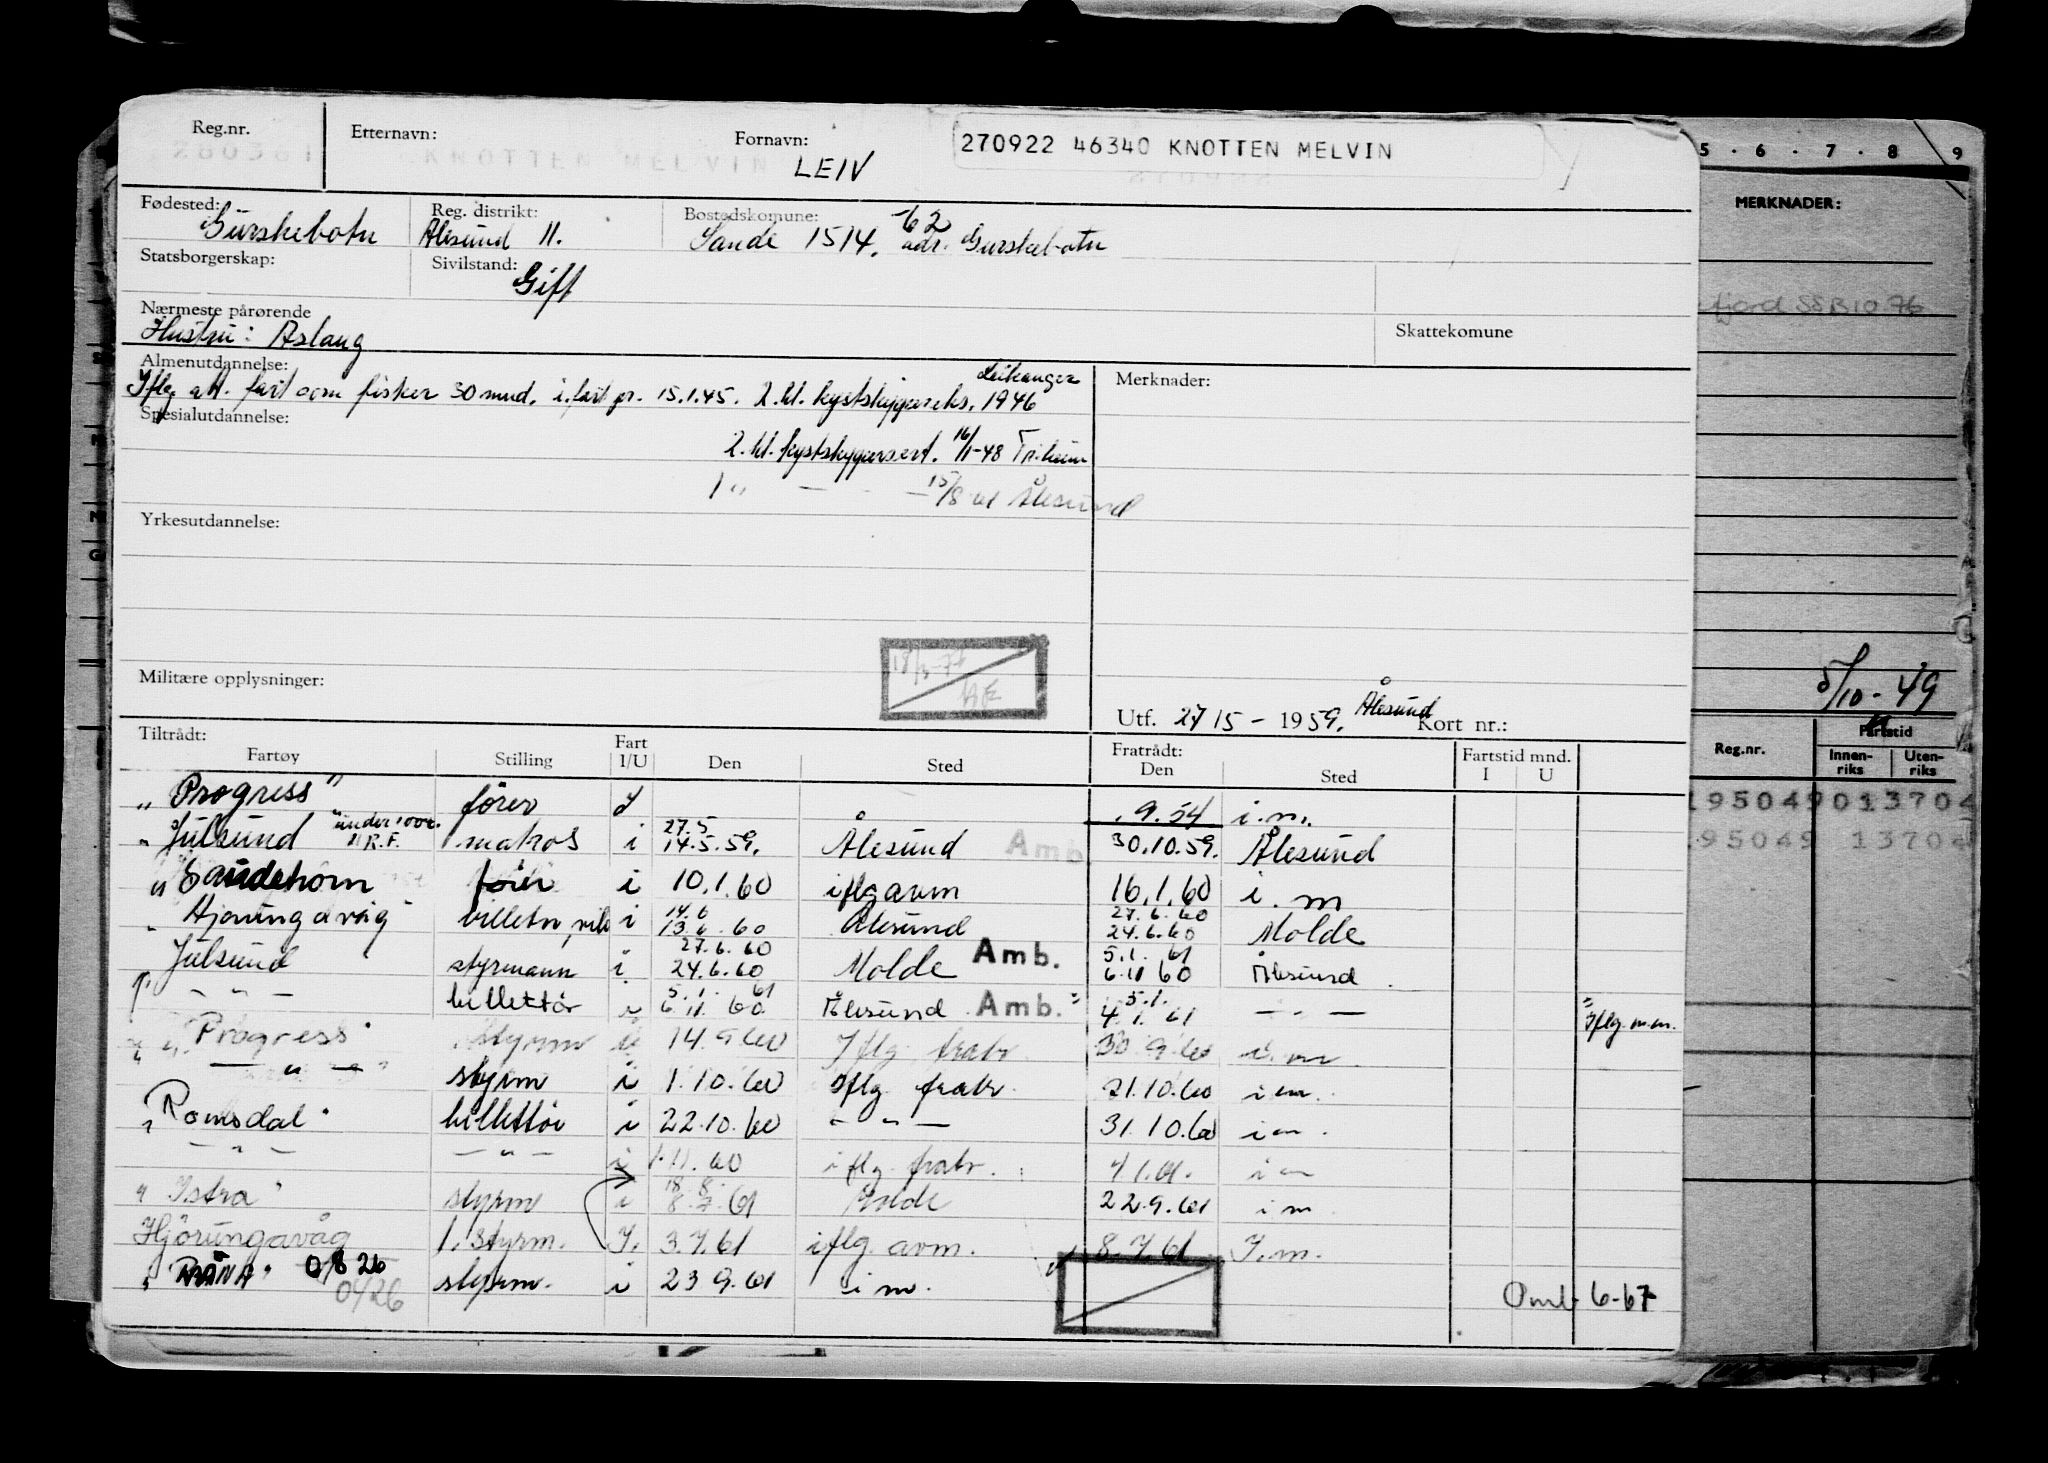 Reg.nr. Etternavn: Fornavn: 270922 46340 KNOTTEN MELVIN
260361 KNOTTEN MELVIN LEIV
Fødested: Reg. distrikt: Bostedskomune: -62
Gurskebotn Ålesund 11. Sande 1514. adr. Gurskebotn
Statsborgerskap: Sivilstand:
Gift
Nærmeste pårørende Skattekomune
Hustru: Aslaug
Almenutdannelse: Merknader:
Leikanger
Iflg. att. fart som fisker 30 mnd. i. fart pr. 15.1.45. 2. kl. kystskippereks. 1946
Spesialutdannelse:
2. kl. kystskippersert. 16/1-48 Tr.heim
1 " — 15/8 61 Ålesund
Yrkesutdannelse:
Militære opplysninger:
Utf. 27/5 - 1959. Ålesund Kort nr.:
Tiltrådt: Fratrådt: Fartstid mnd.
Fartøy Stilling Fart I/U Den Sted Den Sted I U
"Progress" fører I . 9. 54 i. m.
"Julsund" under 100 R.F. matros i 27.5 14.5.59. Ålesund Amb. 30.10.59. Ålesund
"Saudehorn fører i 10.1.60 iflg avm 16.1.60 i. m
"Hjørungavåg" billetør i 14.6 13.6.60 Ålesund 27.6.60 24.6.60 Molde
Julsund styrmann i 27.6.60 24.6.60 Molde Amb. 5.1.61 6.11 60 Ålesund
" — " — billettør i 5.1.61 6.11.60 Ålesund Amb." 5.1. 4.1.61 — " — Iflg. m.m.
"Progress" styrm i 14.9.60 Iflg. fratr. 30.9.60 i. m
— " — styrm i 1.10.60 Iflg. fratr. 21.10.60 i m.
"Romsdal" billettør i 22.10.60 — " — 31.10.60 i m.
— " — — " — i 1.11.60 iflg. fratr. 4.1.61. i m
"Istra" styrm i 18.8. 8.7.61 Molde 22.9.61 i m.
Hjørungavåg 1. styrm. I. 3.7.61 iflg. avm. 8.7.61 I. m.
"RÅNA" 0826 styrm. i 23 9.61 i m.
0426
Omb 6-67
5 . 6 . 7 . 8 9
MERKNADER:
fjord SSB 10 76
5/10-49
Reg.nr. Fartstid
Innen-riks Uten-riks
195049013704
195049 13704